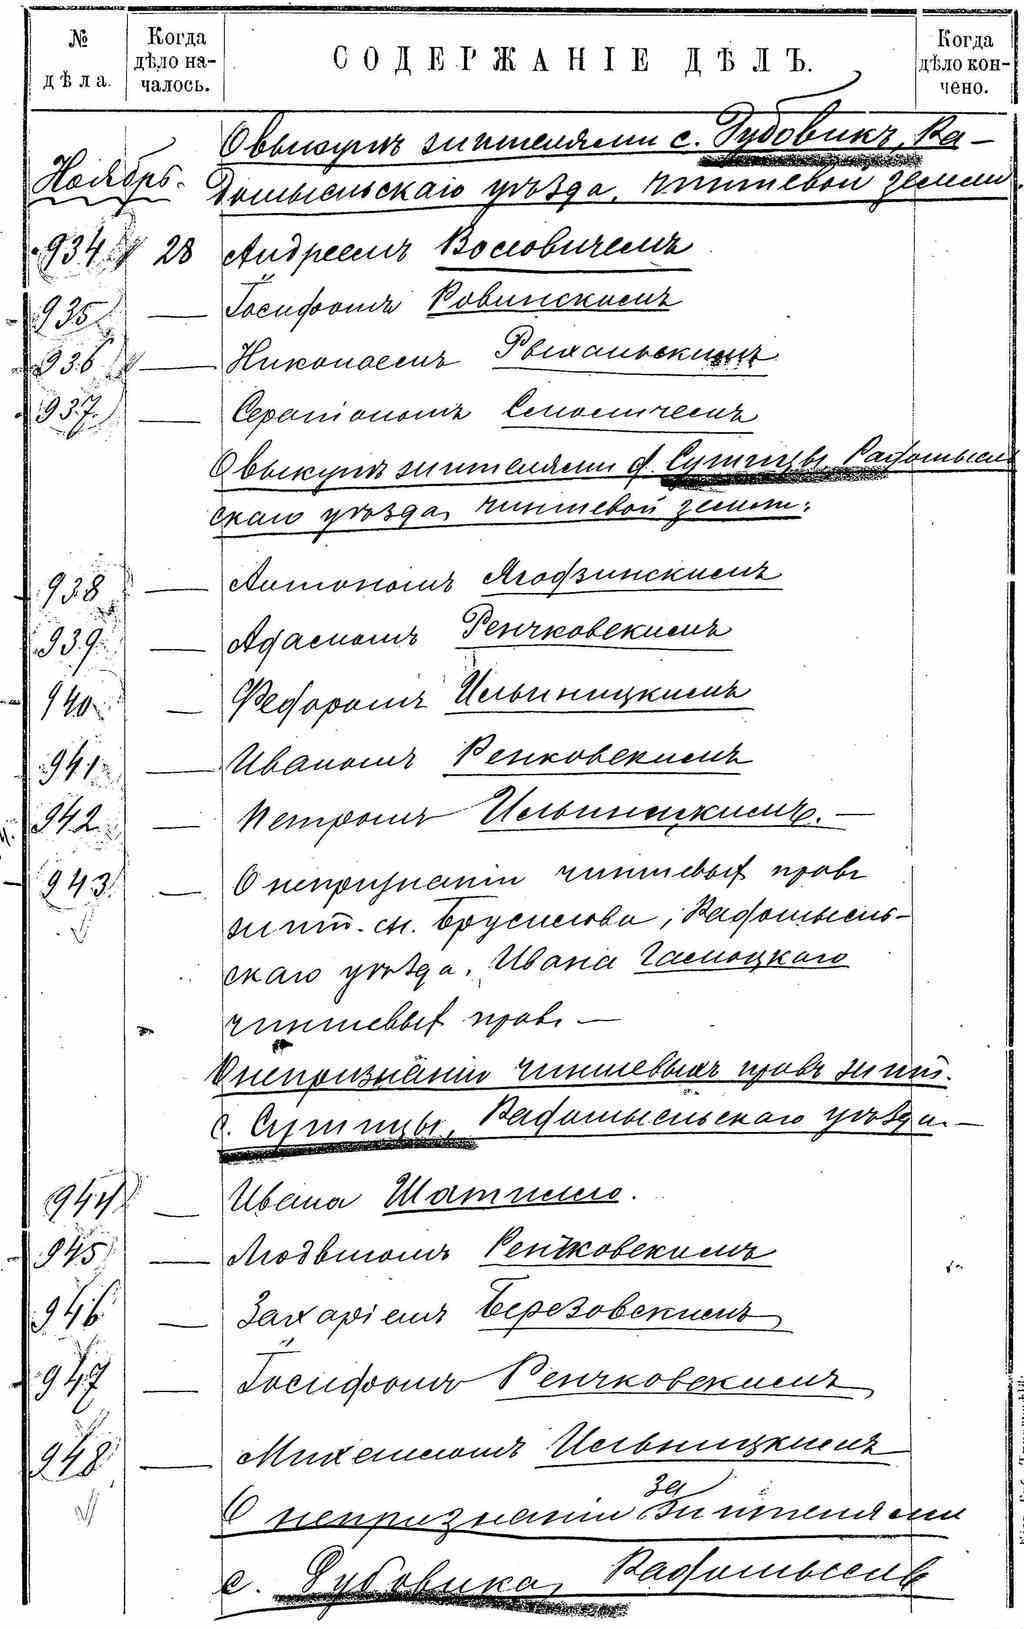 № дѣла.
Когда дѣло началось.
СОДЕРЖАНІЕ ДѢЛЪ.
Когда дѣло кончено.
О выкупѣ жителями с. Дубовикъ, Ра-
Ноябрь. домысльскаго уѣзда, чиншевой земли.
934 28 Андреемъ Воловичемъ
935 — Іосифомъ Ровинскимъ
936 — Николаемъ Рыхальскимъ
937 — Серапіономъ
О выкупѣ жителями д. Ситицы Радомысль
скаго уѣзда чиншевой земли:
938 — Антономъ Ягодзинскимъ
939 — Адамомъ Ренчковскимъ
940 — Федоромъ Ильницкимъ
941 — Иваномъ Ренковскимъ
942 — Петромъ Ильницкимъ. —
943 — О непризнаніи чиншевых правъ
жит. м. Брусилова, Радомысль-
скаго уѣзда, Ивана
чиншевых правъ —
О непризнаніи чиншевыхъ правъ жит.
с. Ситицы, Радомысльскаго уѣзда. —
944 — Ивана Шатило.
945 — Людвигомъ Ренчковскимъ
946 — Захаріемъ Березовскимъ
947 — Іосифомъ Ренчковскимъ
948 — Михаиломъ Ильницкимъ
О непризнаніи за жителями
с. Дубовика, Радомысль